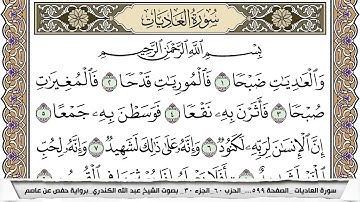 سُورَةُ العَادِيَاتِ
بِسْمِ ٱللَّهِ ٱلرَّحْمَٰنِ ٱلرَّحِيمِ
وَٱلْعَٰدِيَٰتِ ضَبْحًا ١ فَٱلْمُورِيَٰتِ قَدْحًا ٢ فَٱلْمُغِيرَٰتِ
صُبْحًا ٣ فَأَثَرْنَ بِهِۦ نَقْعًا ٤ فَوَسَطْنَ بِهِۦ جَمْعًا ٥
إِنَّ ٱلْإِنسَٰنَ لِرَبِّهِۦ لَكَنُودٌ ٦ وَإِنَّهُۥ عَلَىٰ ذَٰلِكَ لَشَهِيدٌ ٧ وَإِنَّهُۥ لِحُبِّ
سورة العاديات _الصفحة ٥٩٩_... الحزب ٦٠_الجزء ٣٠_ بصوت الشيخ عبد الله الكندري_برواية حفص عن عاصم